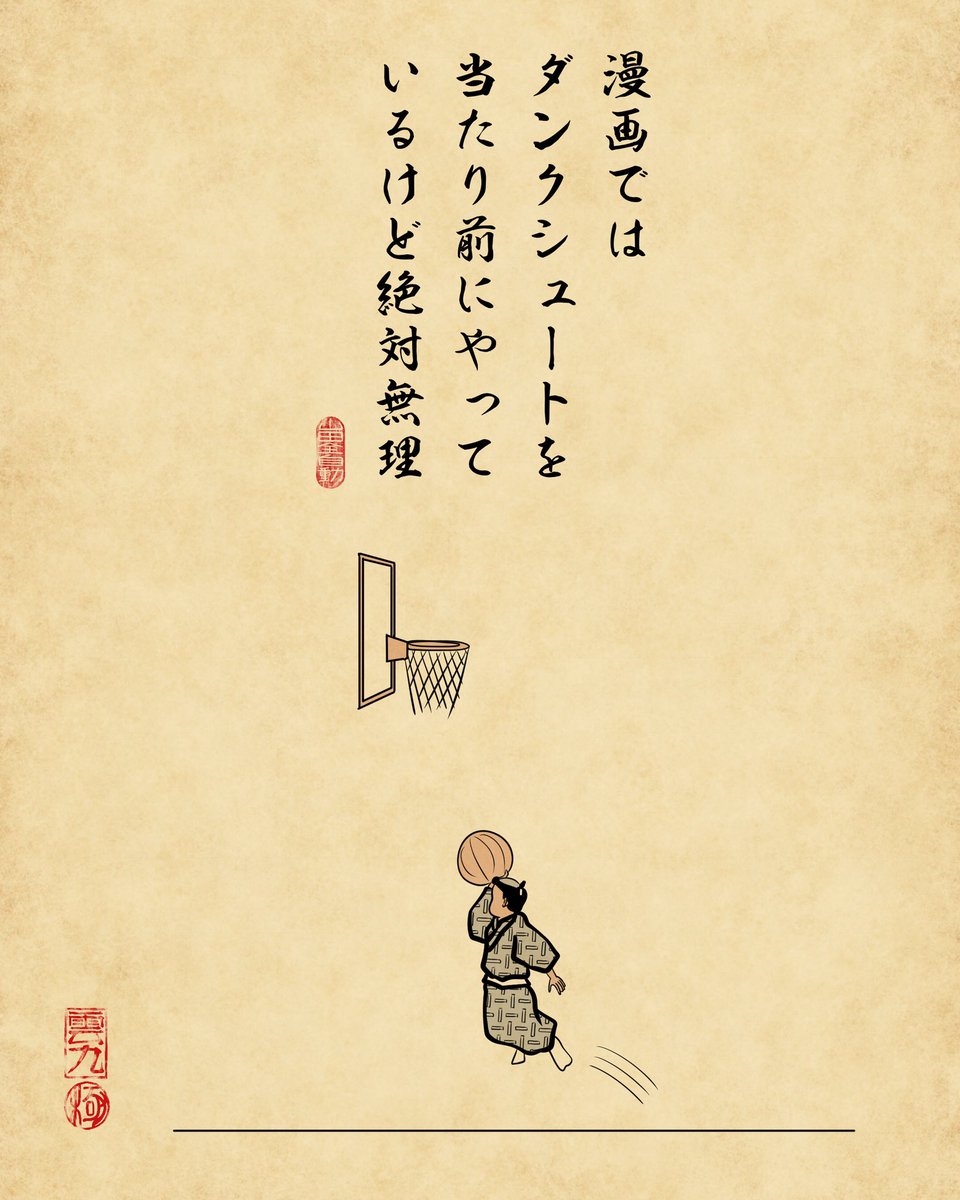 漫画では
ダンクシュートを
当たり前にやって
いるけど絶対無理